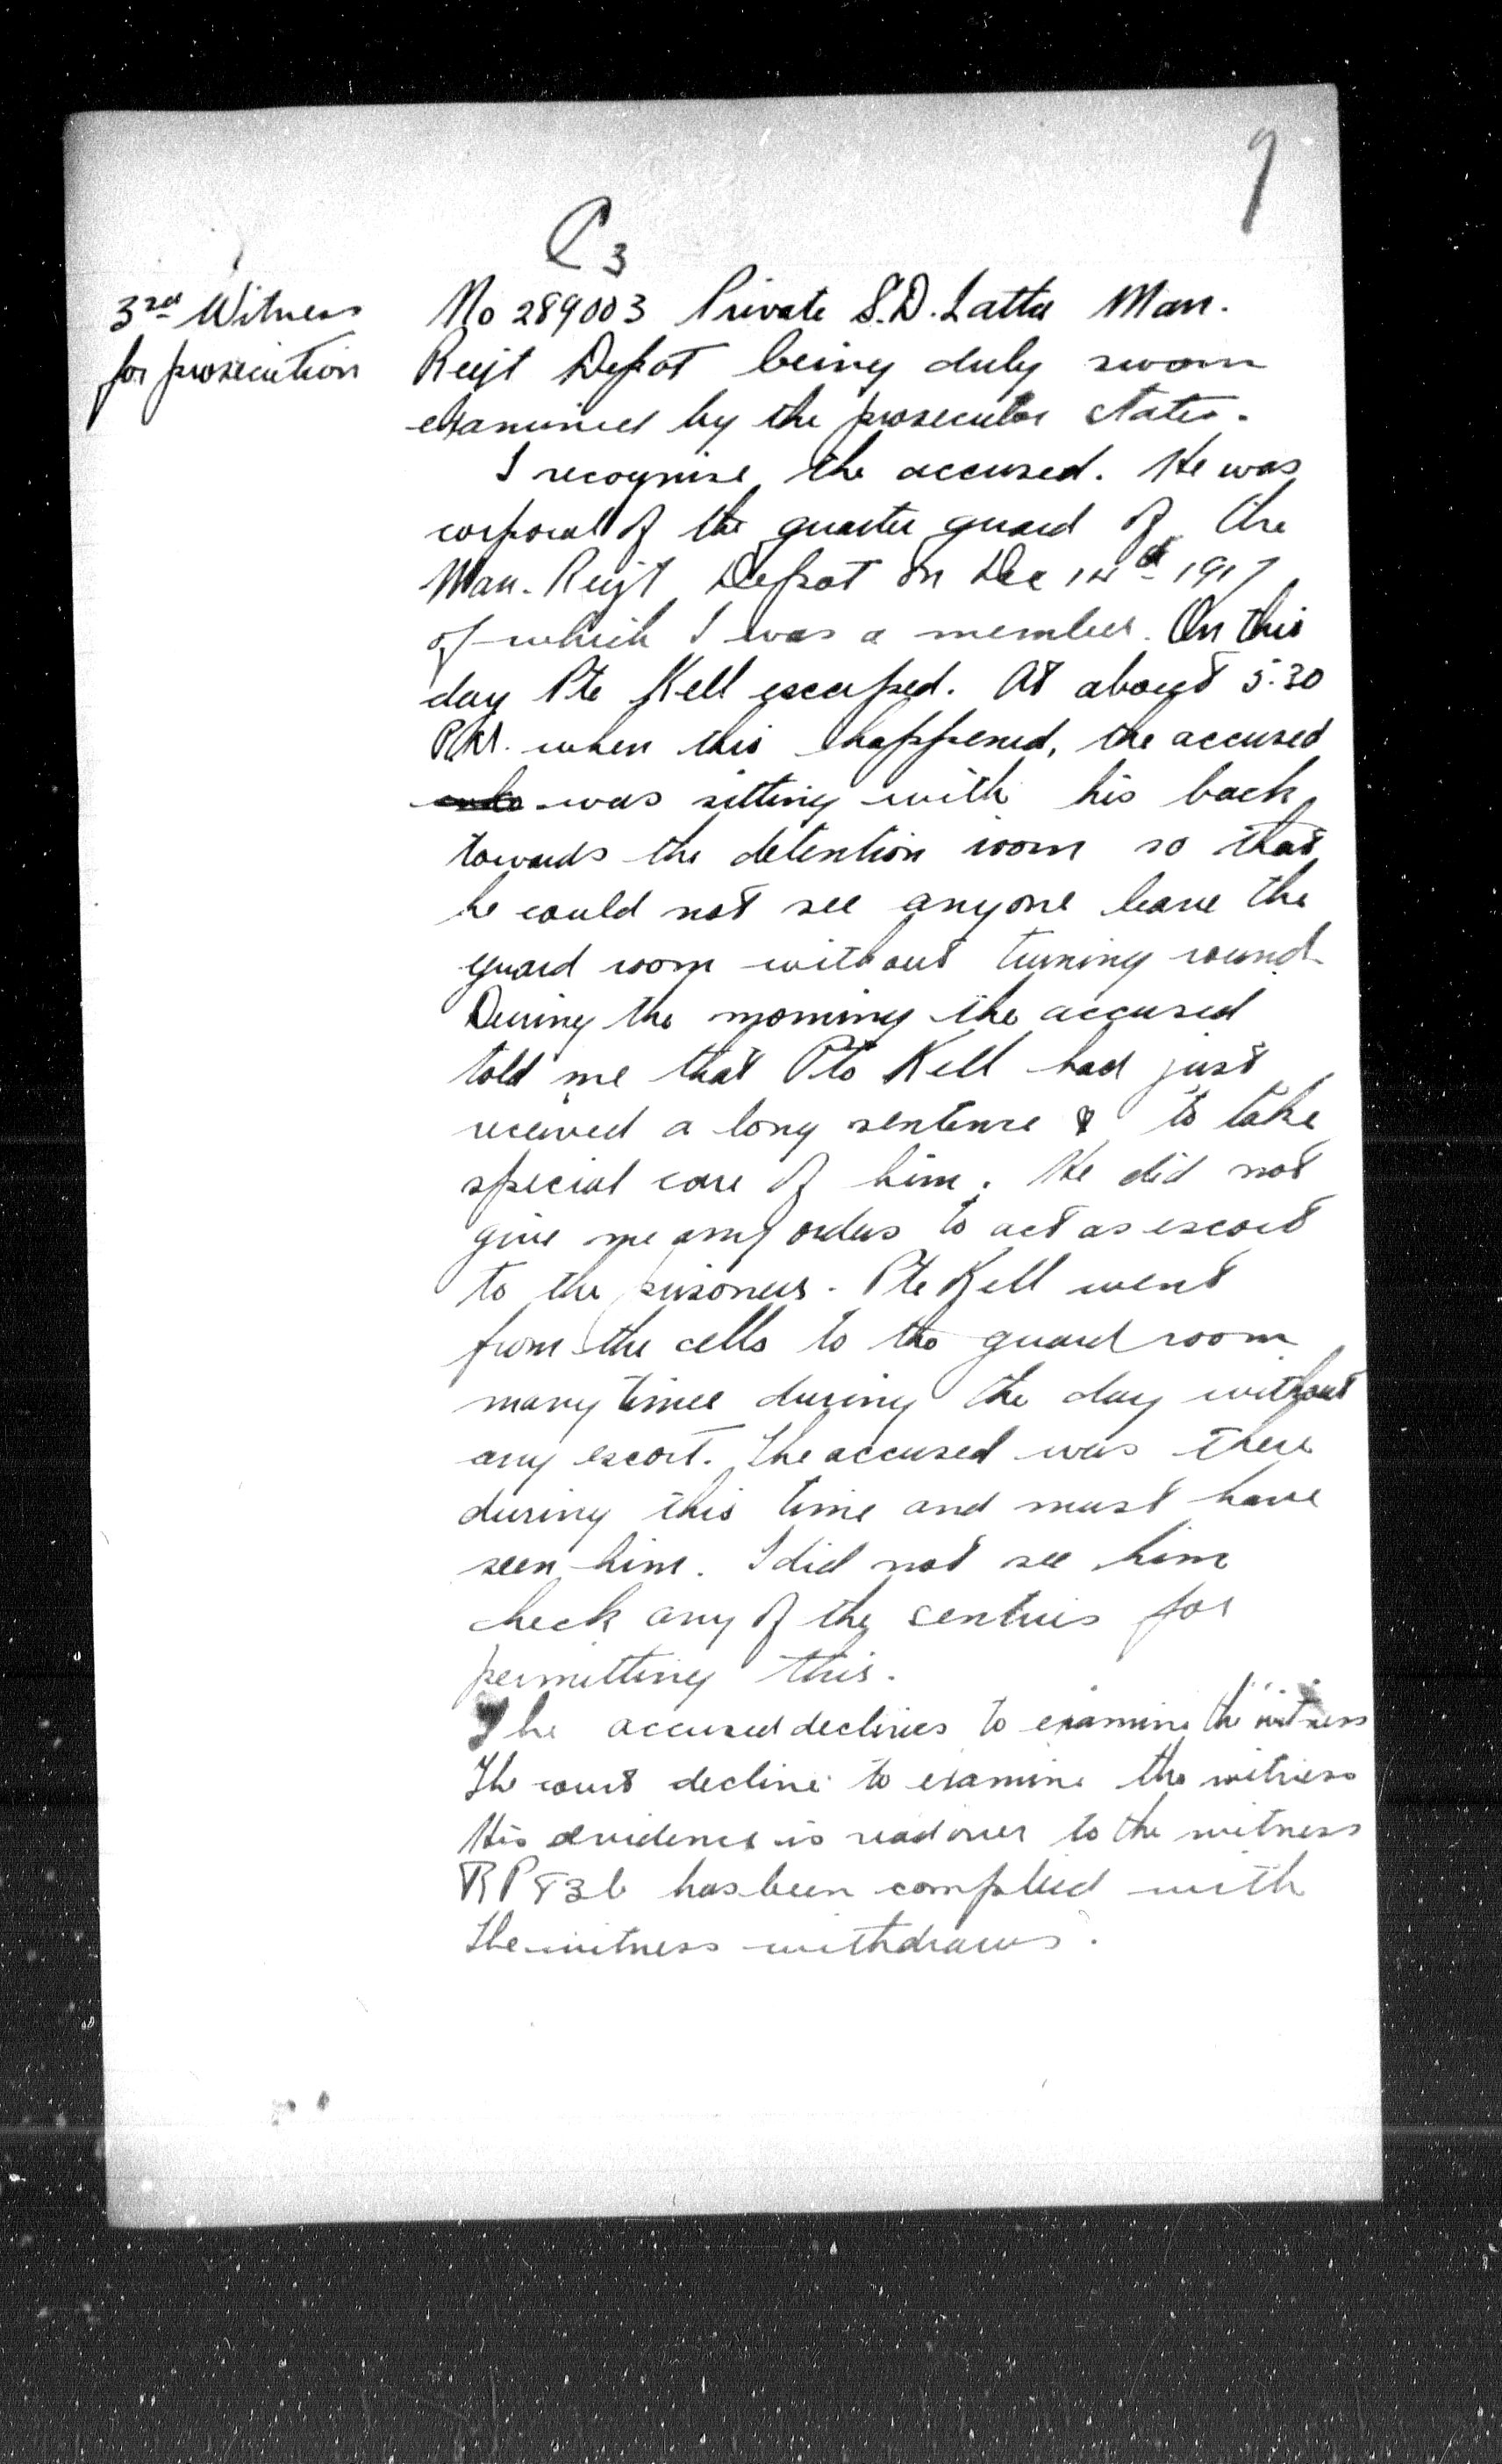 9
C3
3rd Witness
for prosecution
No 289003 Private S.D. Latta Man.
Regt Depot being duly sworn
examined by the prosecutor states.
I recognise the accused. He was
corporal of the quarter guard of the
Man. Regt Depot on Dec 14th 1917
of which I was a member. On this
day Pte Kell escaped. At about 5.30
P.M. when this happened, the accused
was sitting with his back
towards the detention room so that
he could not see anyone leave the
guard room without turning round.
During the morning the accused
told me that Pte Kell had just
received a long sentence & to take
special care of him. He did not
give me any orders to act as escort
to the prisoners. Pte Kell went
from the cells to the guard room
many times during the day without
any escort. The accused was there
during this time and must have
seen him. I did not see him
check any of the sentries for
permitting this.
The accused declines to examine the witness
The court decline to examine the witness
His evidence is read over to the witness
RP 83b has been complied with
The witness withdraws.